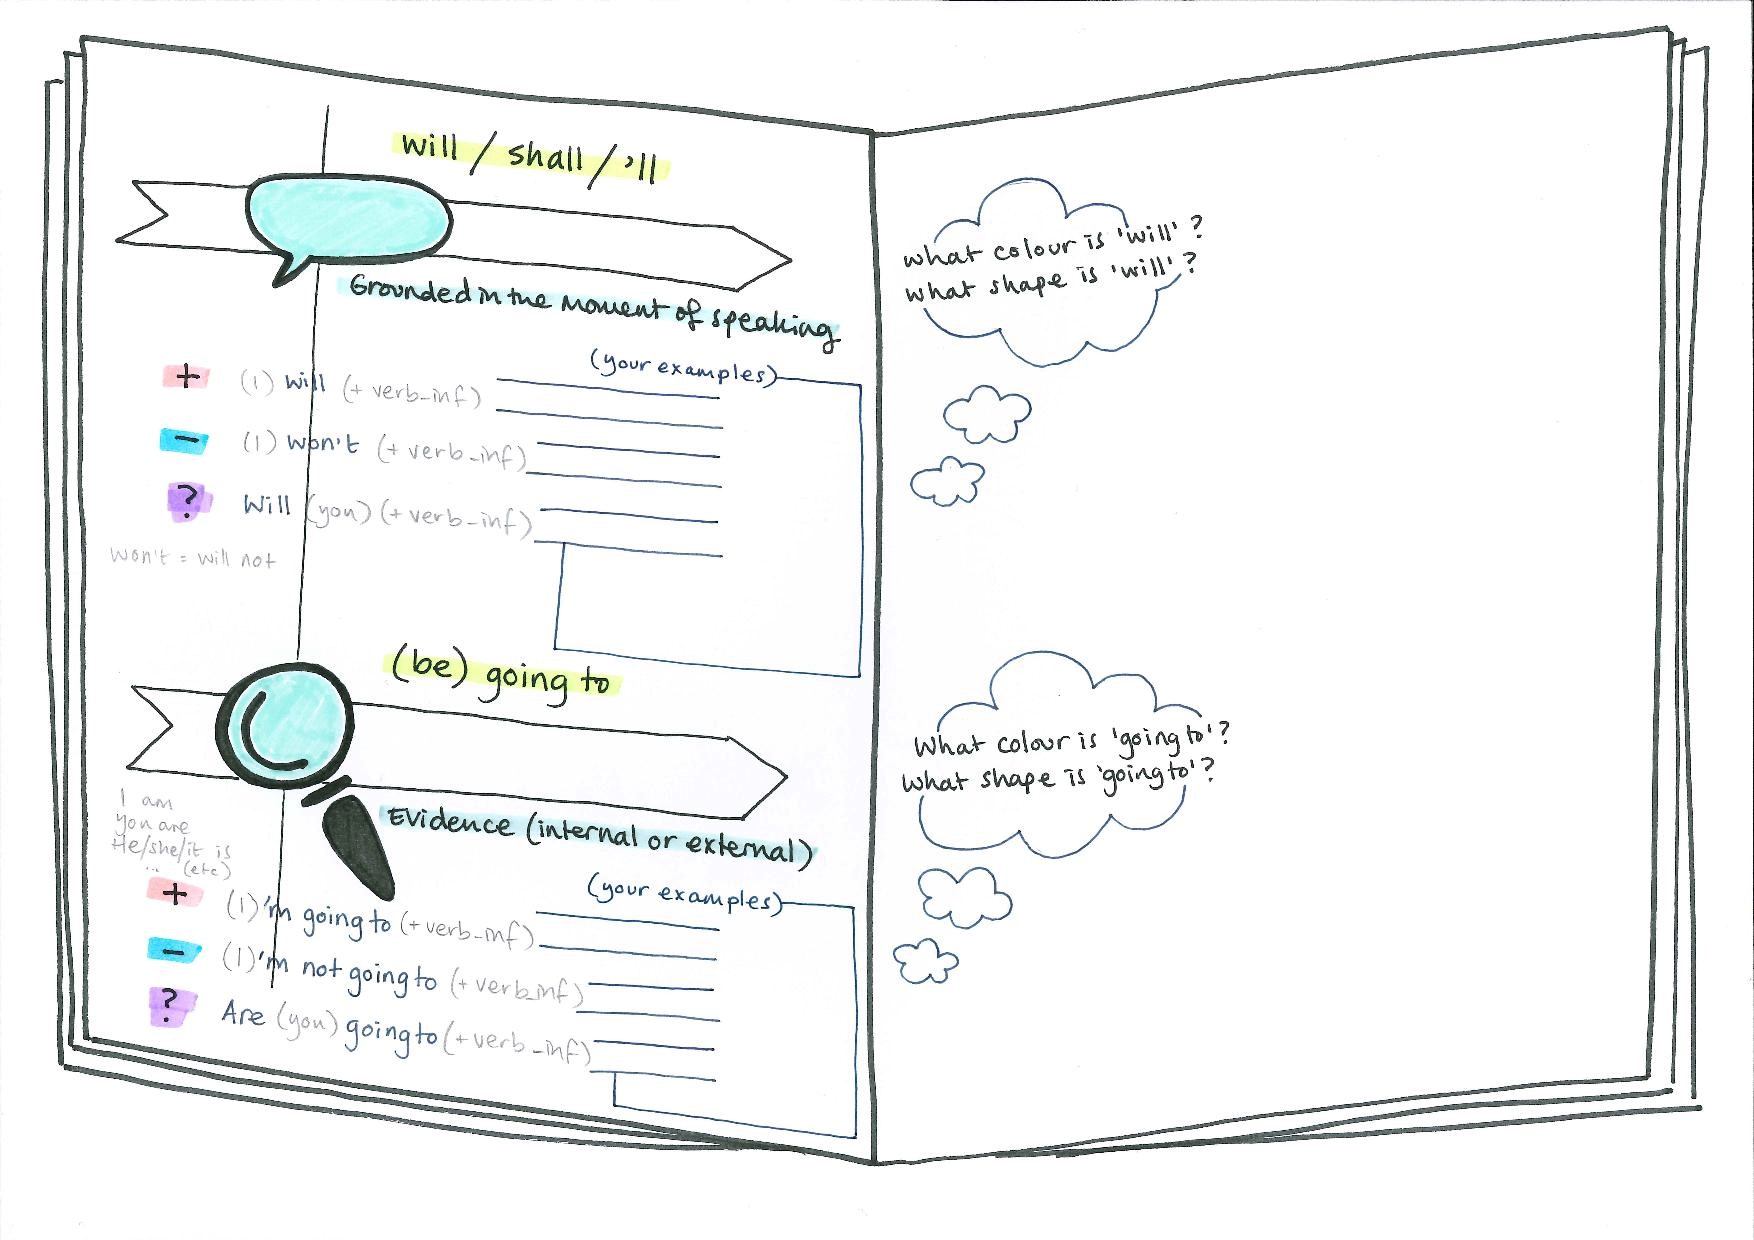 will / shall / 'll
Grounded in the moment of speaking
(your examples)
+ (I) will (+ verb_inf)
- (I) won't (+ verb_inf)
? Will (you) (+ verb_inf)
won't = will not
(be) going to
Evidence (internal or external)
I am
You are
He/she/it is
.. (etc)
(your examples)
+ (I)'m going to (+ verb_inf)
- (I)'m not going to (+ verb_inf)
? Are (you) going to (+ verb_inf)
What colour is 'will' ?
What shape is 'will' ?
What colour is 'going to' ?
What shape is 'going to' ?